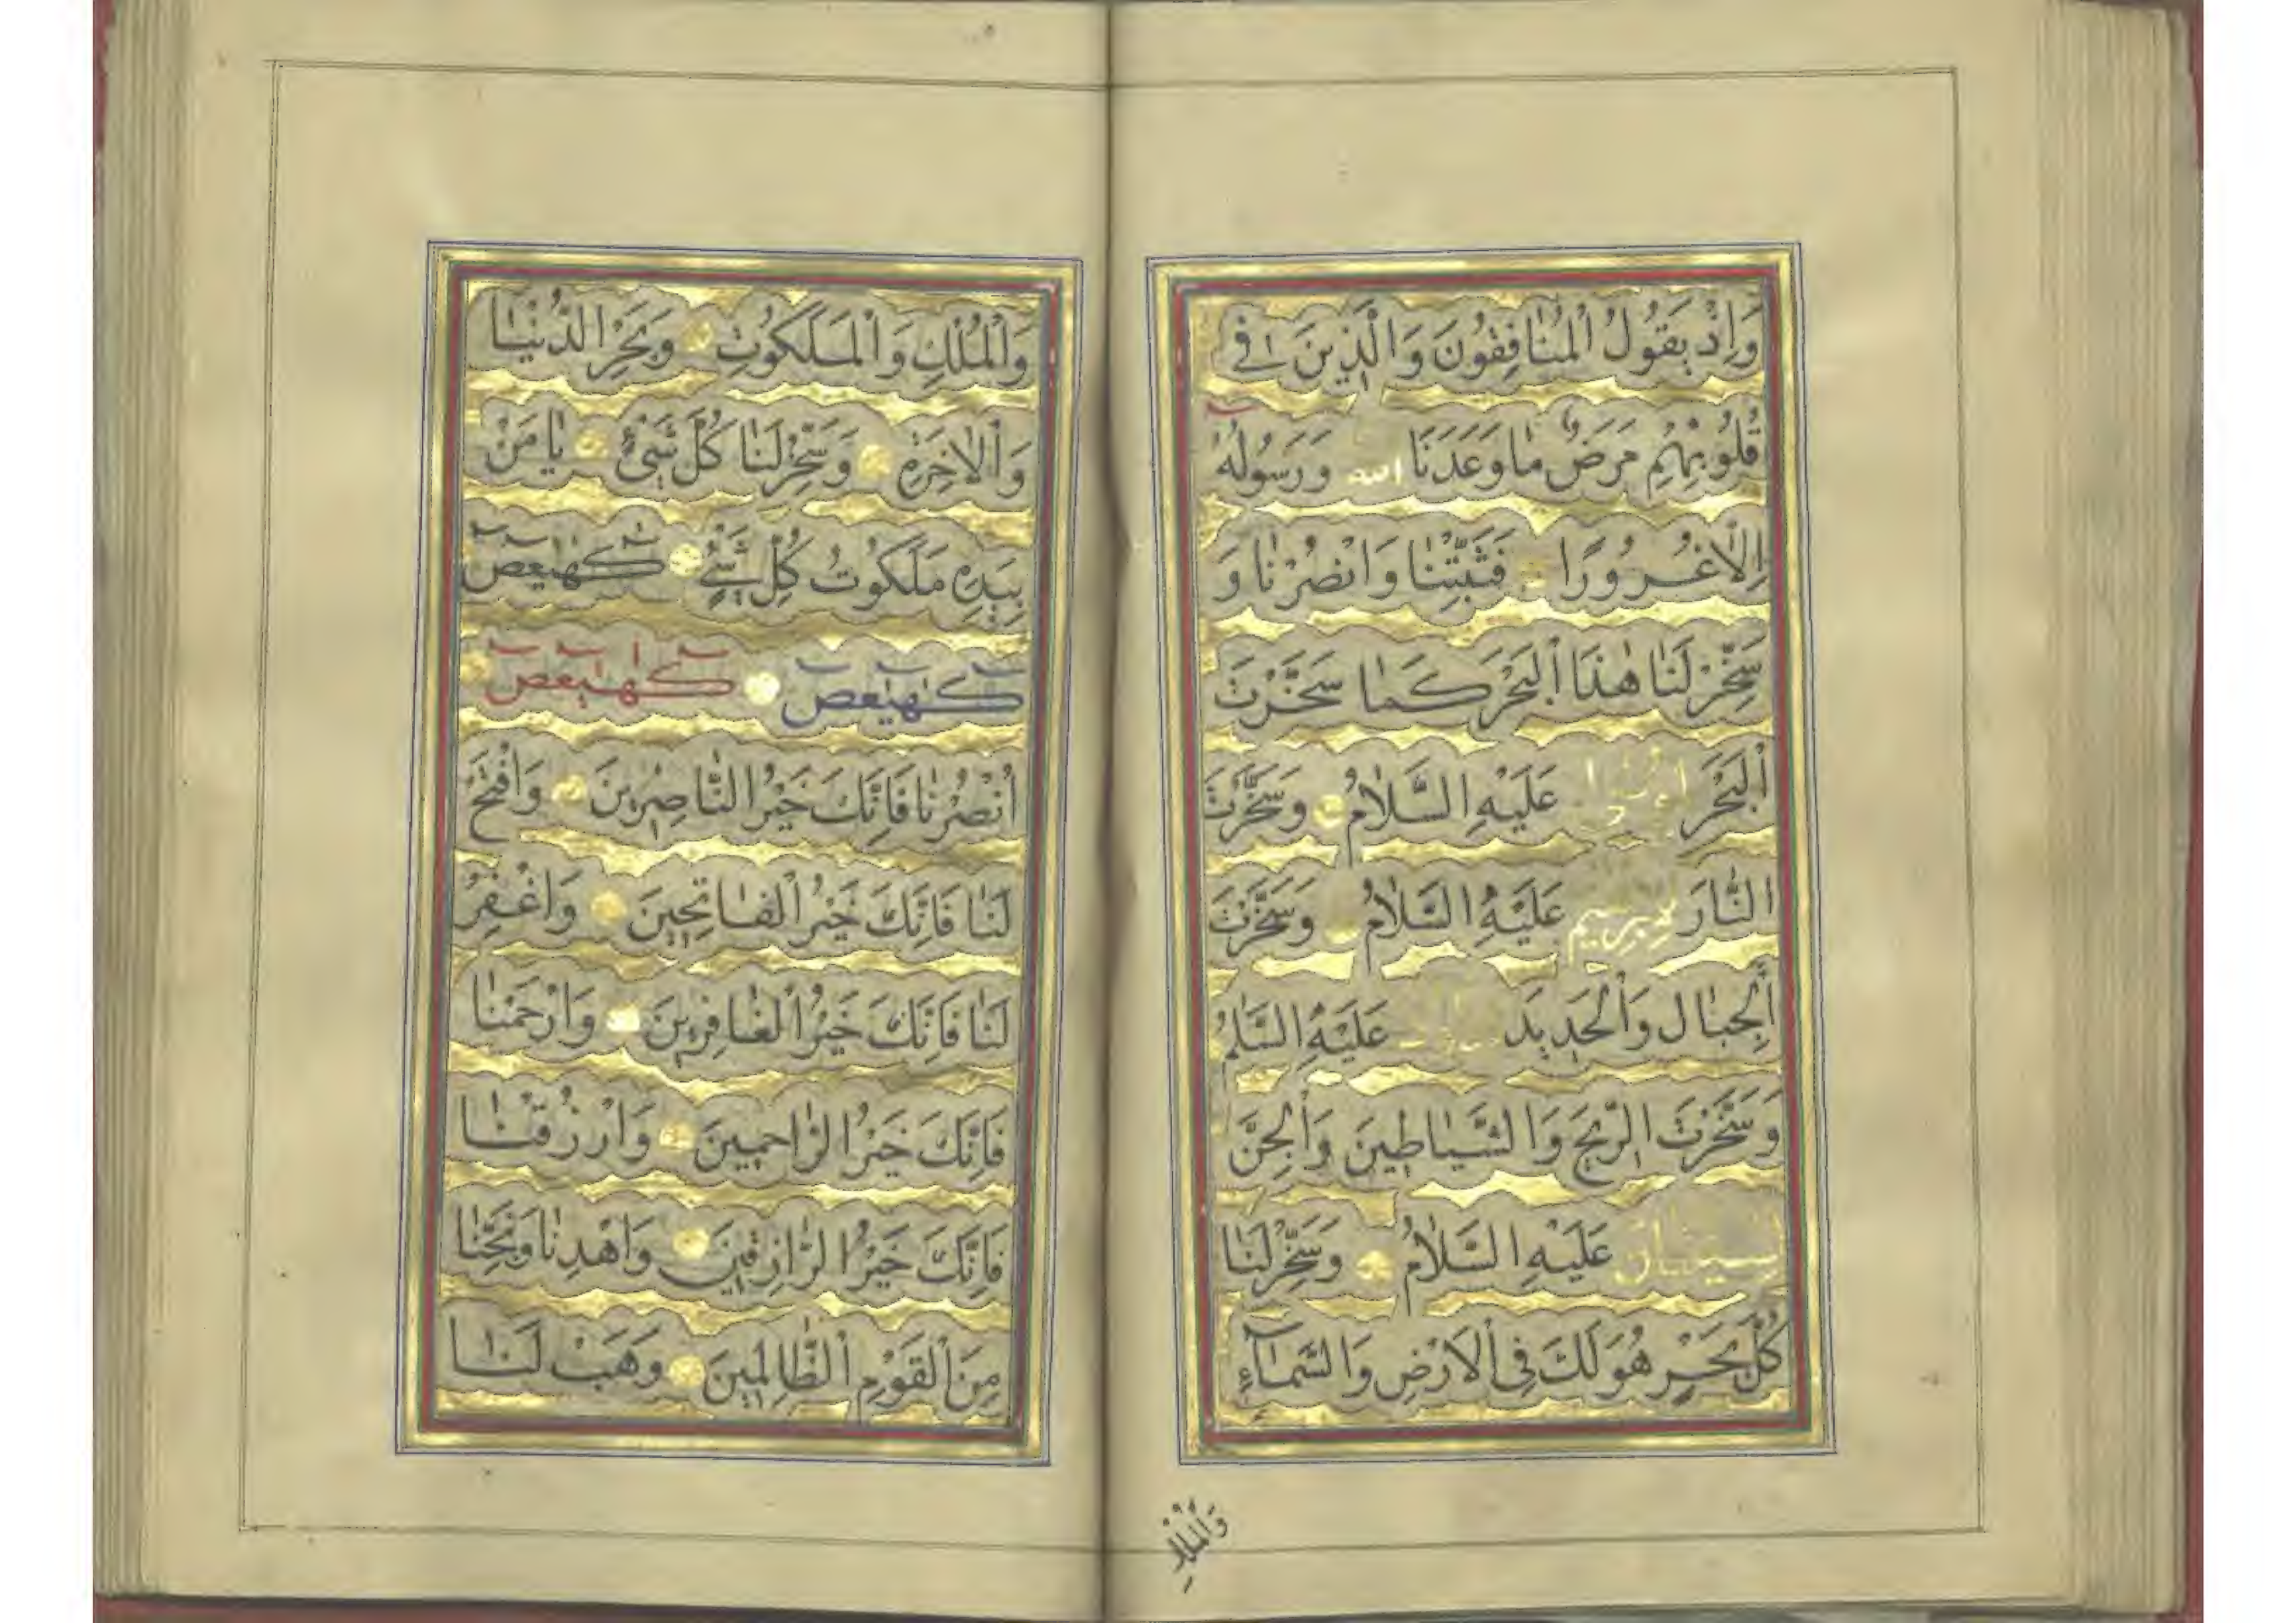 وَاِذْ يَقُولُ الْمُنَافِقُونَ وَالَّذِينَ فِي
قُلُوبِهِمْ مَرَضٌ مَا وَعَدَنَا اللّٰه وَرَسُولُهُ
اِلَّا غُرُورًا فَثَبِّتْنَا وَانْصُرْنَا وَ
سَخِّرْ لَنَا هٰذَا الْبَحْرَ كَمَا سَخَّرْتَ
الْبَحْرَ عَلَيْهِ السَّلَامُ وَسَخَّرْتَ
النَّارَ لِإبرهيم عَلَيْهِ السَّلَامُ وَسَخَّرْتَ
الْجِبَالَ وَالْحَدِيدَ عَلَيْهِ السَّلَامُ
وَسَخَّرْتَ الرِّيحَ وَالشَّيَاطِينَ وَالْجِنَّ
لسليمان عَلَيْهِ السَّلَامُ وَسَخِّرْ لَنَا
كُلَّ بَحْرٍ هُوَ لَكَ فِي الْاَرْضِ وَالسَّمَاءِ
وَالْمُلْكِ
وَالْمُلْكِ وَالْمَلَكُوتِ وَبَحْرَ الدُّنْيَا
وَالْاٰخِرَةِ وَسَخِّرْ لَنَا كُلَّ شَيْءٍ يَا مَنْ
بِيَدِهِ مَلَكُوتُ كُلِّ شَيْءٍ كٓهٰيٰعٓصٓ
كٓهٰيٰعٓصٓ كٓهٰيٰعٓصٓ
اُنْصُرْنَا فَاِنَّكَ خَيْرُ النَّاصِرِينَ وَافْتَحْ
لَنَا فَاِنَّكَ خَيْرُ الْفَاتِحِينَ وَاغْفِرْ
لَنَا فَاِنَّكَ خَيْرُ الْغَافِرِينَ وَارْحَمْنَا
فَاِنَّكَ خَيْرُ الرَّاحِمِينَ وَارْزُقْنَا
فَاِنَّكَ خَيْرُ الرَّازِقِينَ وَاهْدِنَا وَنَجِّنَا
مِنَ الْقَوْمِ الظَّالِمِينَ وَهَبْ لَنَا